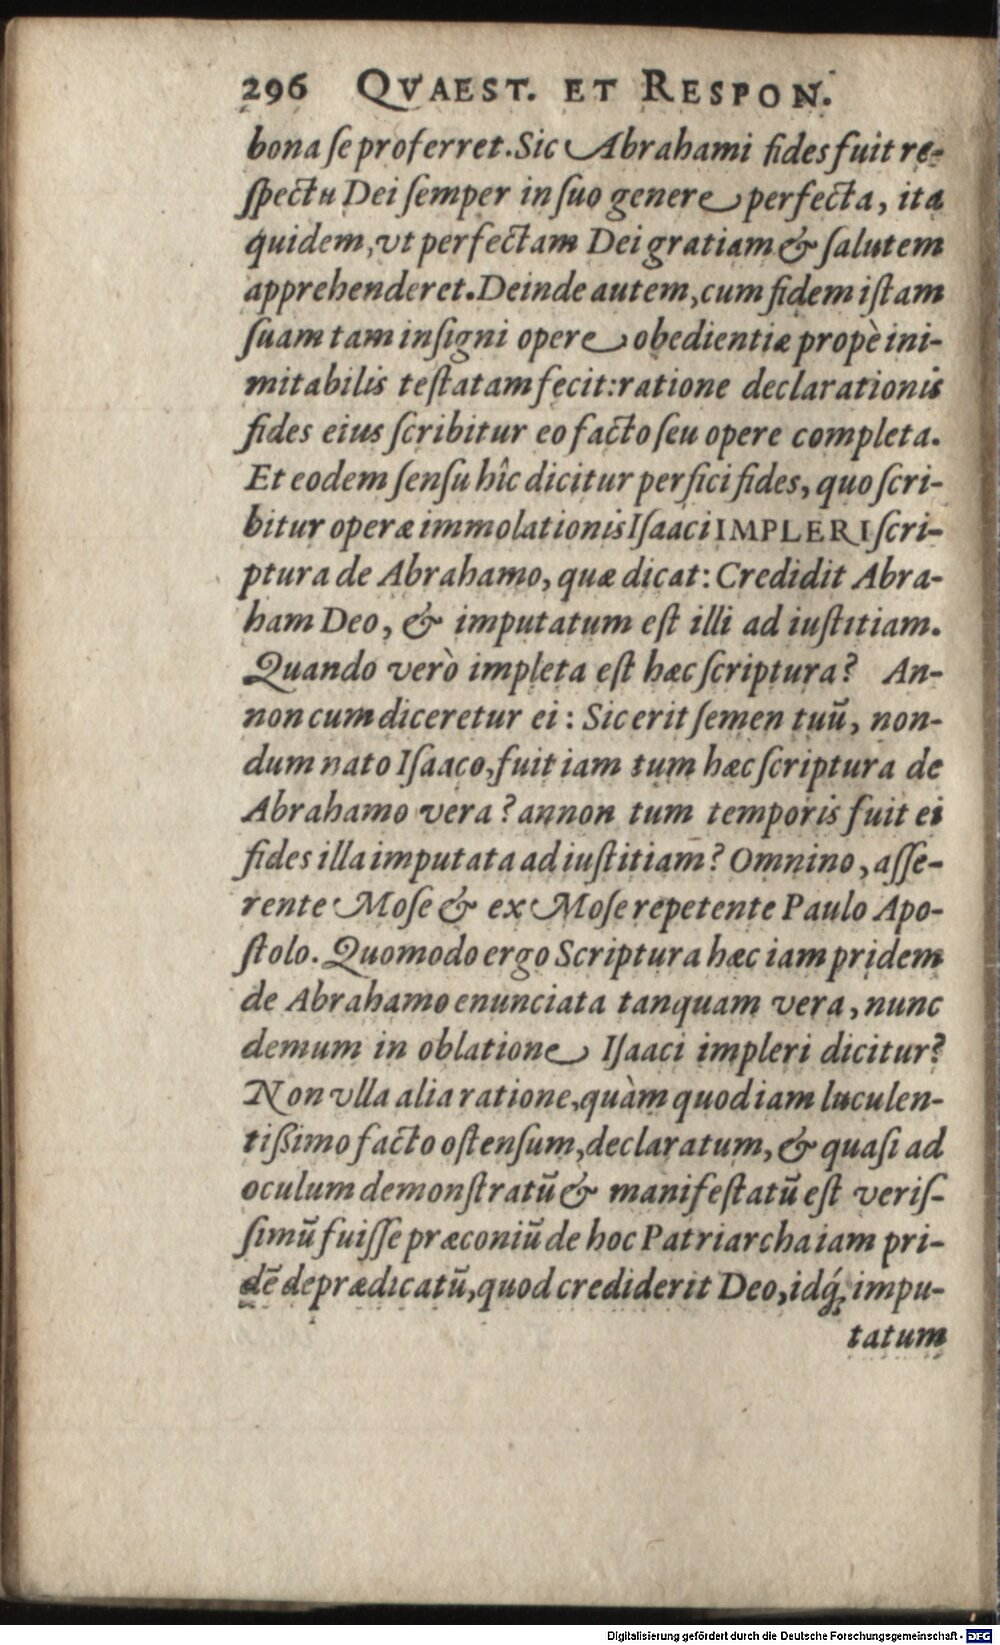 296 QVAEST. ET RESPON.
bona ſe proferret. Sic Abrahami fides fuit re-
ſpectu Dei ſemper in ſuo genere perfecta, ita
quidem, vt perfectam Dei gratiam & ſalutem
apprehenderet. Deinde autem, cum fidem iſtam
ſuam tam inſigni opere obedientiæ propè ini-
mitabilis teſtatam fecit: ratione declarationis
fides eius ſcribitur eo facto ſeu opere completa.
Et eodem ſenſu hîc dicitur perfici fides, quo ſcri-
bitur operæ immolationis Iſaaci IMPLERI ſcri-
ptura de Abrahamo, quæ dicat: Credidit Abra-
ham Deo, & imputatum eſt illi ad iuſtitiam.
Quando verò impleta eſt hæc ſcriptura? An-
non cum diceretur ei: Sic erit ſemen tuū, non-
dum nato Iſaaco, fuit iam tum hæc ſcriptura de
Abrahamo vera? annon tum temporis fuit ei
fides illa imputata ad iuſtitiam? Omnino, aſſe-
rente Moſe & ex Moſe repetente Paulo Apo-
ſtolo. Quomodo ergo Scriptura hæc iam pridem
de Abrahamo enunciata tanquam vera, nunc
demum in oblatione Iſaaci impleri dicitur?
Non vlla alia ratione, quàm quod iam luculen-
tißimo facto oſtenſum, declaratum, & quaſi ad
oculum demonſtratū & manifeſtatū eſt veriſ-
ſimū fuiſſe præconiū de hoc Patriarcha iam pri-
dē deprædicatū, quod crediderit Deo, idq́; impu-
tatum
Digitalisierung gefördert durch die Deutsche Forschungsgemeinschaft - DFG